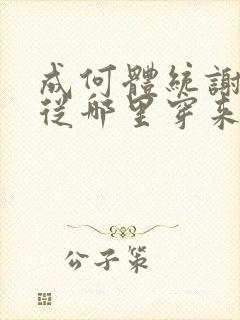 成何體統謝
從哪里穿來
公子策